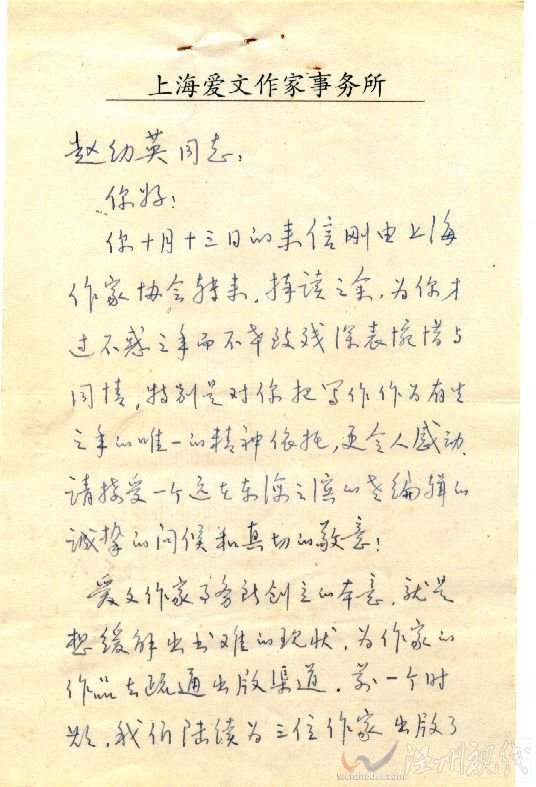 上海爱文作家事务所
赵幼英同志：
你好！
你十月十三日的来信刚由上海
作家协会转来，捧读之余，为你才
过不惑之年而不幸致残深表惋惜与
同情，特别是对你把写作作为有生
之年的唯一的精神依托，更令人感动，
请接受一个远在东海之滨的老编辑的
诚挚的问候和真切的敬意！
爱文作家事务所创立的本意，就是
想缓解出书难的现状，为作家的
作品去疏通出版渠道。前一个时
期，我们陆续为三位作家出版了
温州视线
wenzhousx.com